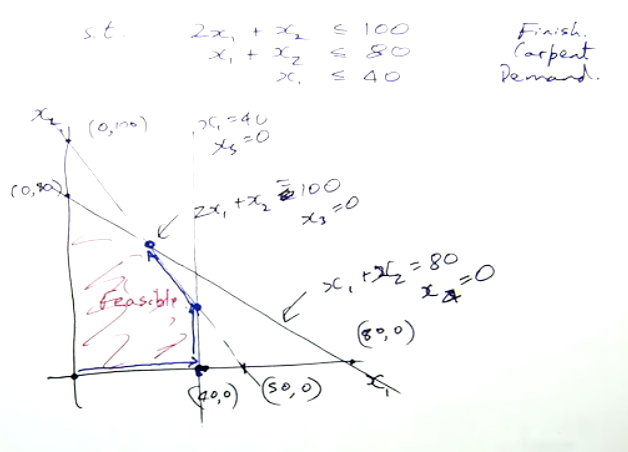 s.t. 2x₁ + x₂ ≤ 100 Finish.
x₁ + x₂ ≤ 80 Carpent
x₁ ≤ 40 Demand.
x₂
(0,100)
x₁ = 40
x₃ = 0
(0,80)
2x₁ + x₂ = 100
x₃ = 0
x₁ + x₂ = 80
x₄ = 0
Feasible
(80,0)
(40,0) (50,0) x₁